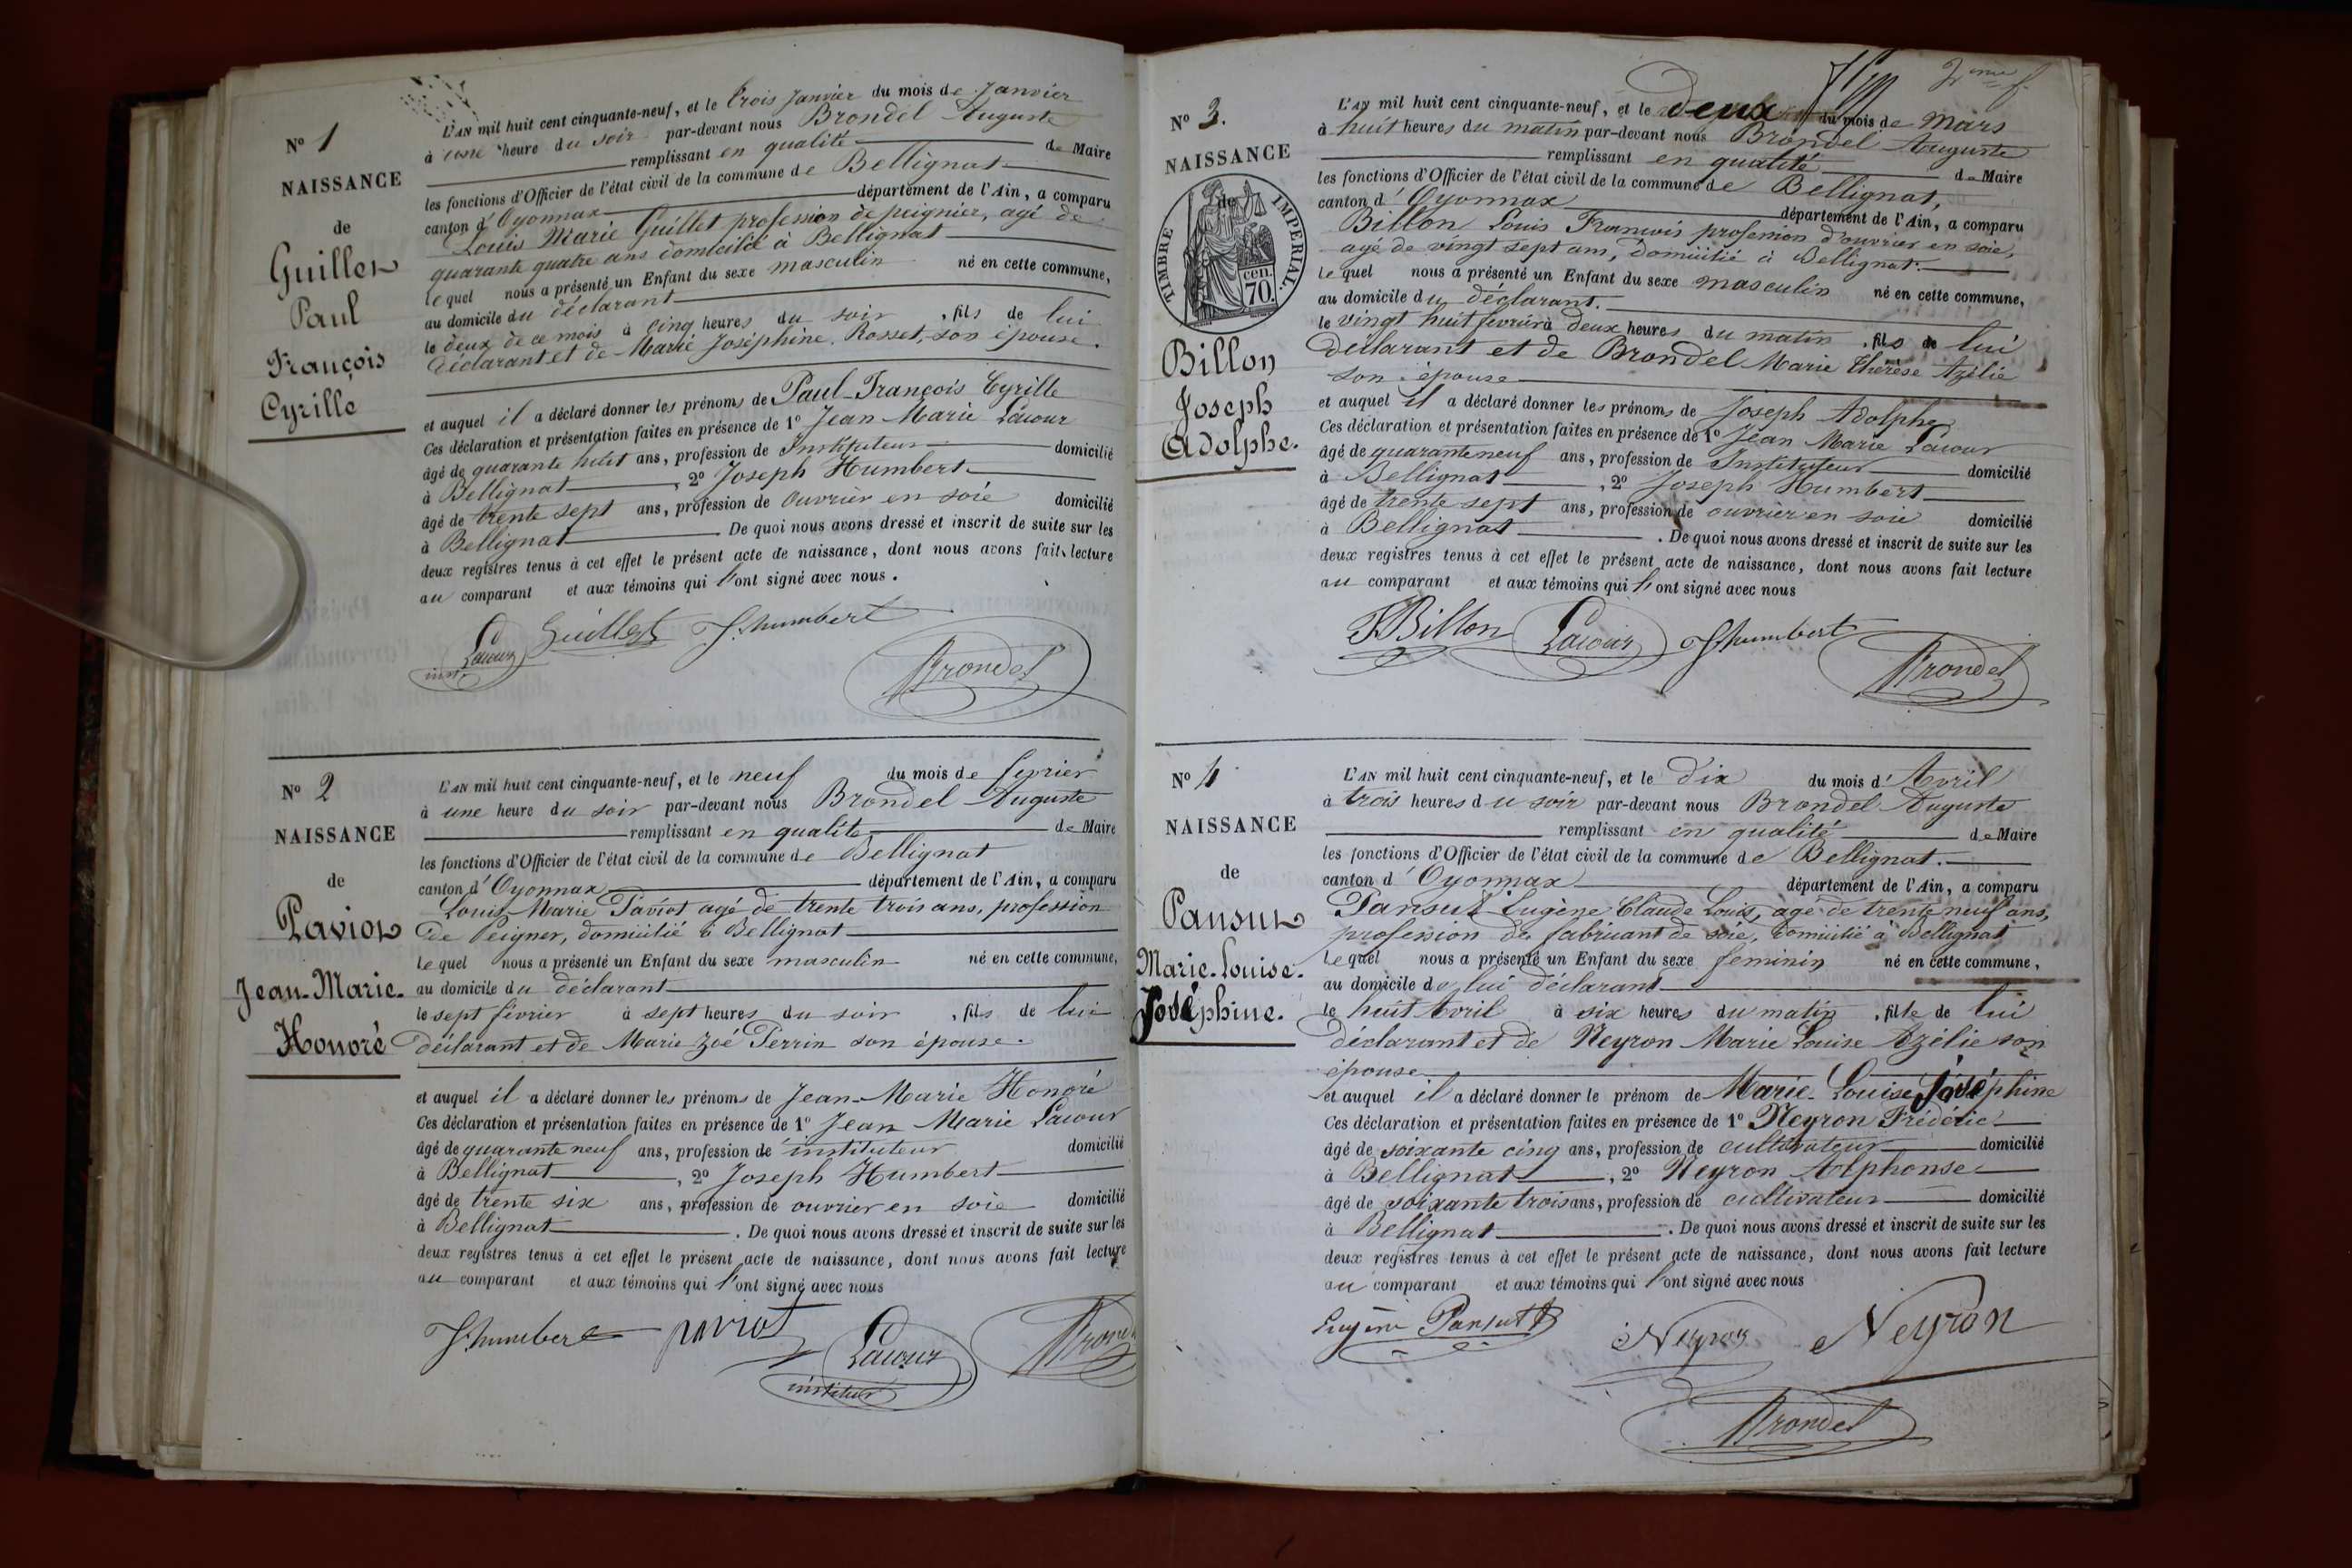 N° 1
NAISSANCE
de
Guillet
Paul
François
Cyrille
L'AN mil huit cent cinquante-neuf, et le trois Janvier du mois de Janvier
à une heure du soir par-devant nous Brondel Auguste
remplissant en qualité de Maire
les fonctions d'Officier de l'état civil de la commune de Bellignat
canton d'Oyonnax département de l'Ain, a comparu
Louis Marie Guillet profession de peignier, agé de
quarante quatre ans domicilié à Bellignat
lequel nous a présenté un Enfant du sexe masculin né en cette commune,
au domicile du déclarant
le deux de ce mois à cinq heures du soir, fils de lui
déclarant et de Marie Joséphine Rosset, son épouse.
et auquel il a déclaré donner les prénoms de Paul-François Cyrille
Ces déclaration et présentation faites en présence de 1° Jean Marie Lacour
âgé de quarante huit ans, profession de Instituteur domicilié
à Bellignat, 2° Joseph Humbert
âgé de trente sept ans, profession de ouvrier en soie domicilié
à Bellignat. De quoi nous avons dressé et inscrit de suite sur les
deux registres tenus à cet effet le présent acte de naissance, dont nous avons fait lecture
au comparant et aux témoins qui l'ont signé avec nous.
Lacour Guillet J. humbert
inst.
Brondel
N° 2
NAISSANCE
de
Paviot
Jean-Marie-
Honoré
L'AN mil huit cent cinquante-neuf, et le neuf du mois de fevrier
à une heure du soir par-devant nous Brondel Auguste
remplissant en qualité de Maire
les fonctions d'Officier de l'état civil de la commune de Bellignat
canton d'Oyonnax département de l'Ain, a comparu
Louis-Marie Paviot agé de trente trois ans, profession
de Peigner, domicilié à Bellignat
lequel nous a présenté un Enfant du sexe masculin né en cette commune,
au domicile du déclarant
le sept février à sept heures du soir, fils de lui
déclarant et de Marie Zoé Perrin son épouse.
et auquel il a déclaré donner les prénoms de Jean-Marie Honoré
Ces déclaration et présentation faites en présence de 1° Jean Marie Lacour
âgé de quarante neuf ans, profession de instituteur domicilié
à Bellignat, 2° Joseph Humbert
âgé de trente six ans, profession de ouvrier en soie domicilié
à Bellignat. De quoi nous avons dressé et inscrit de suite sur les
deux registres tenus à cet effet le présent acte de naissance, dont nous avons fait lecture
au comparant et aux témoins qui l'ont signé avec nous
J. humbert paviot Lacour Brondel
instituteur
2me f.
N° 3.
NAISSANCE
de
TIMBRE IMPERIAL.
70. cen.
Billon
Joseph
Adolphe.
L'AN mil huit cent cinquante-neuf, et le deux du mois de Mars
à huit heures du matin par-devant nous Brondel Auguste
remplissant en qualité de Maire
les fonctions d'Officier de l'état civil de la commune de Bellignat,
canton d'Oyonnax département de l'Ain, a comparu
Billon Louis François profession d'ouvrier en soie,
agé de vingt sept ans, domicilié à Bellignat.
lequel nous a présenté un Enfant du sexe masculin né en cette commune,
au domicile du déclarant.
le vingt huit fevrier à deux heures du matin, fils de lui
déclarant et de Brondel Marie Thérèse Azélie
son épouse
et auquel il a déclaré donner les prénoms de Joseph Adolphe
Ces déclaration et présentation faites en présence de 1° Jean Marie Lacour
âgé de quarante neuf ans, profession de Instituteur domicilié
à Bellignat, 2° Joseph Humbert
âgé de trente sept ans, profession de ouvrier en soie domicilié
à Bellignat. De quoi nous avons dressé et inscrit de suite sur les
deux registres tenus à cet effet le présent acte de naissance, dont nous avons fait lecture
au comparant et aux témoins qui l'ont signé avec nous
Billon Lacour J humbert
Brondel
N° 4
NAISSANCE
de
Pansut
Marie-Louise-
Joséphine.
L'AN mil huit cent cinquante-neuf, et le dix du mois d'Avril
à trois heures du soir par-devant nous Brondel Auguste
remplissant en qualité de Maire
les fonctions d'Officier de l'état civil de la commune de Bellignat.
canton d'Oyonnax département de l'Ain, a comparu
Pansut Eugène Claude Louis, agé de trente neuf ans,
profession de fabricant de soie, domicilié à Bellignat
lequel nous a présenté un Enfant du sexe feminin né en cette commune,
au domicile de lui déclarant
le huit Avril à six heures du matin, fille de lui
déclarant et de Neyron Marie Louise Azélie son
épouse
et auquel il a déclaré donner le prénom de Marie-Louise Joséphine
Ces déclaration et présentation faites en présence de 1° Neyron Frédéric
âgé de soixante cinq ans, profession de cultivateur domicilié
à Bellignat, 2° Neyron Alphonse
âgé de soixante trois ans, profession de cultivateur domicilié
à Bellignat. De quoi nous avons dressé et inscrit de suite sur les
deux registres tenus à cet effet le présent acte de naissance, dont nous avons fait lecture
au comparant et aux témoins qui l'ont signé avec nous
Eugène Pansut Neyron Neyron
Brondel